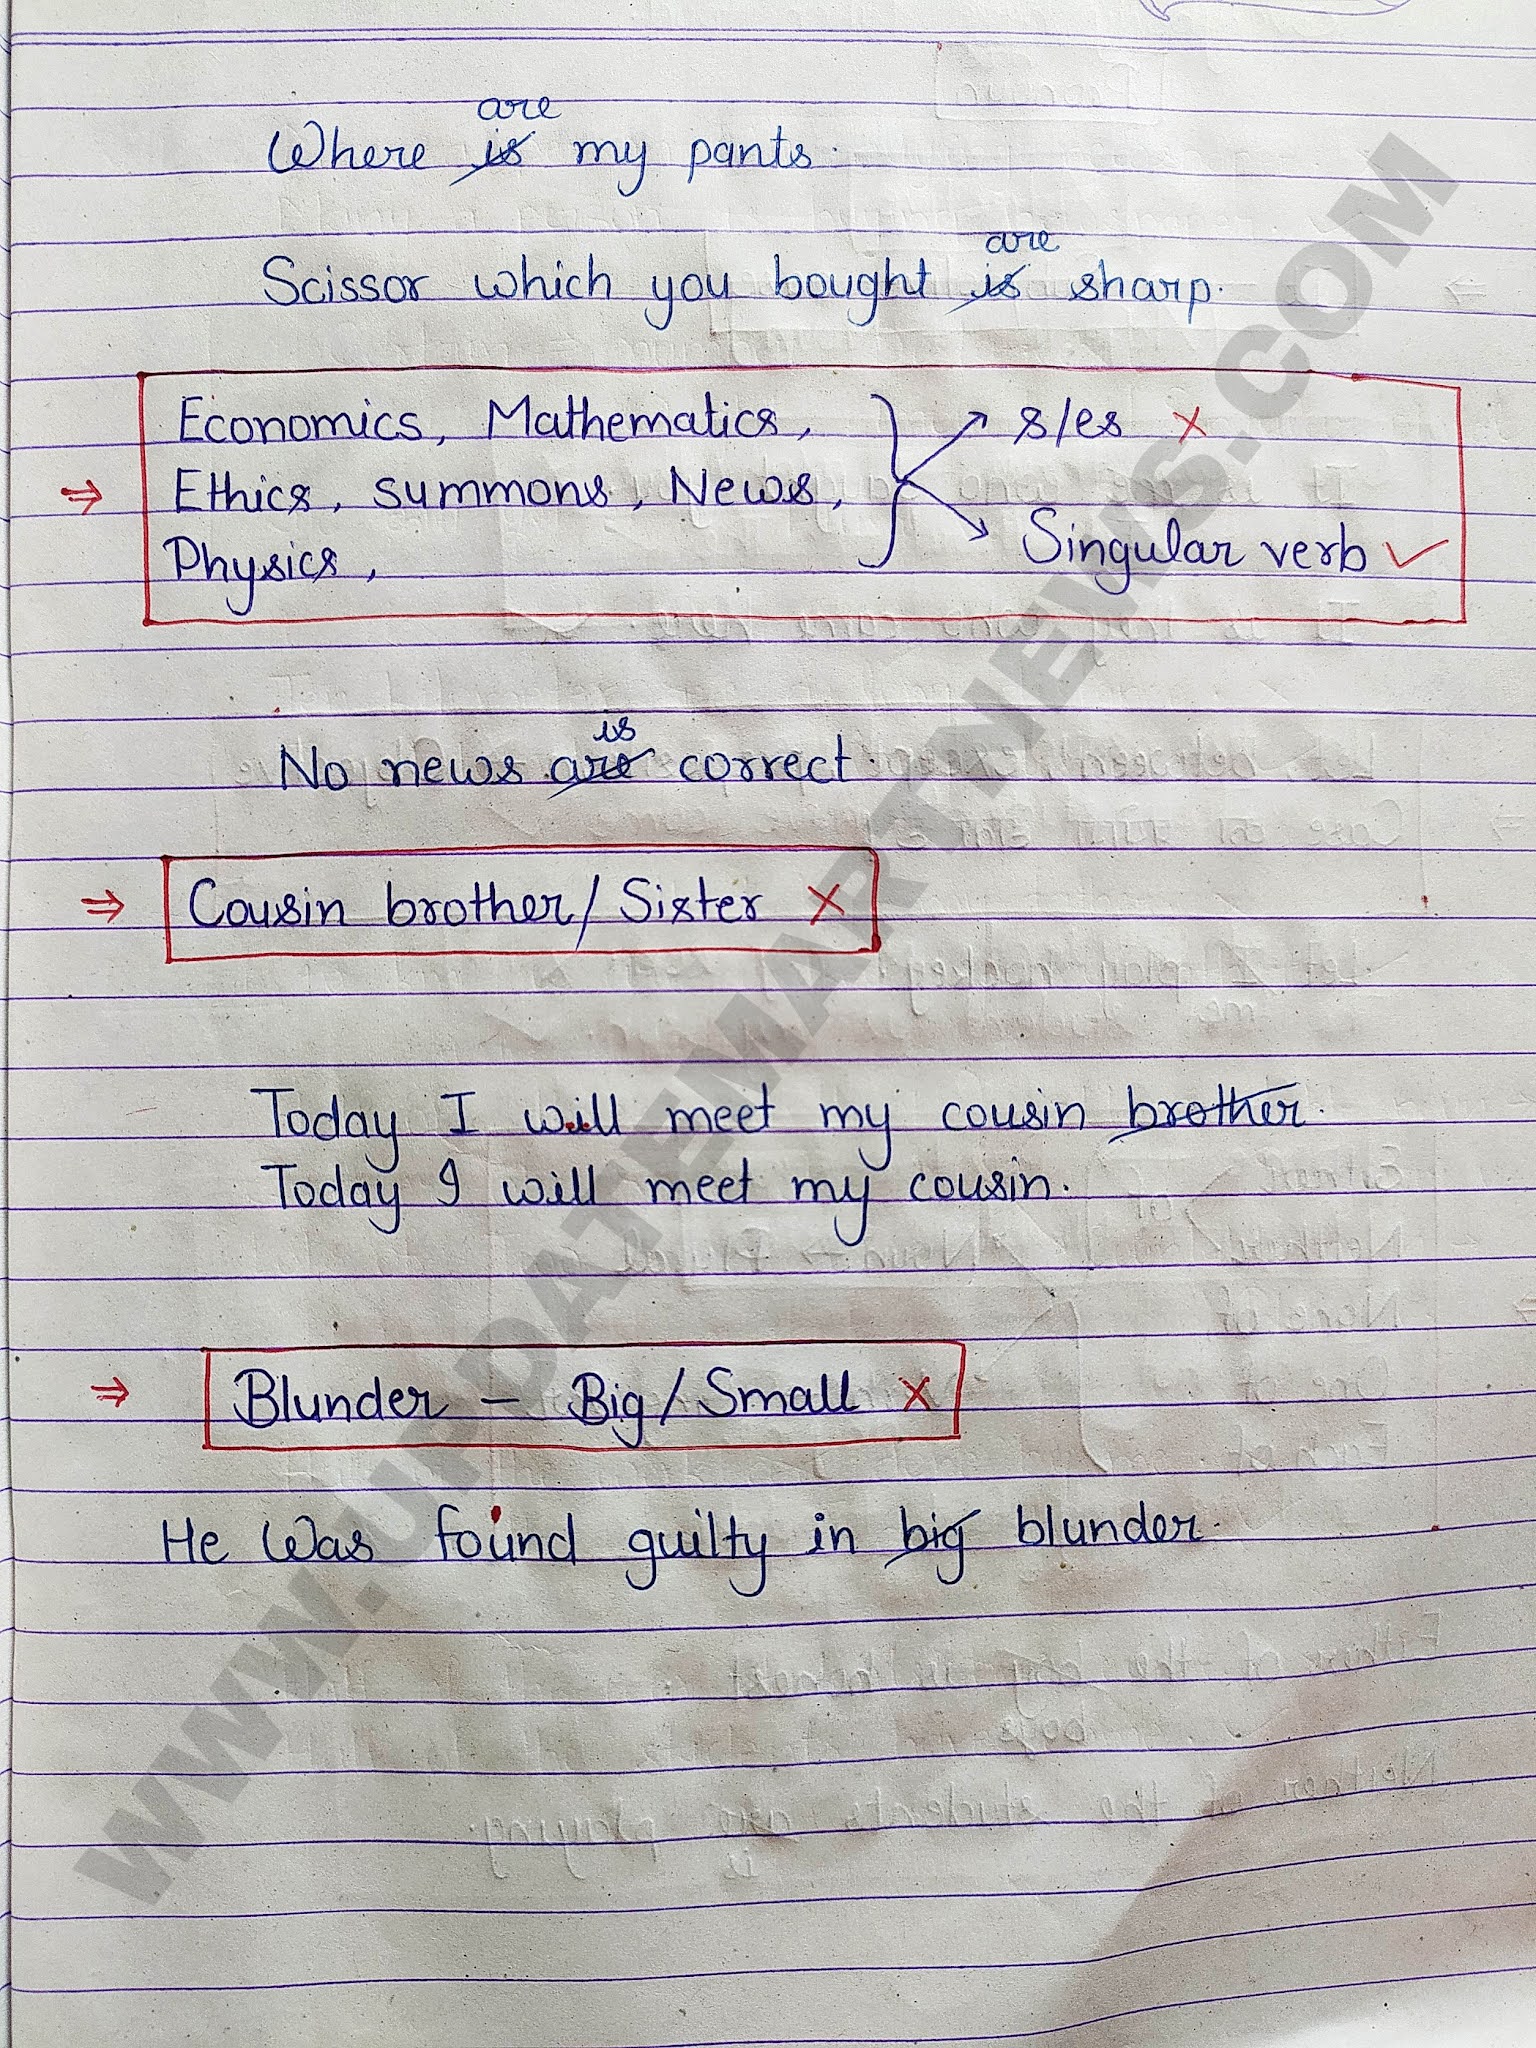 are
Where is my pants.
are
Scissor which you bought is sharp.
Economics, Mathematics, } s/es ×
⇒ Ethics, summons, News,
Physics, Singular verb ✓
is
No news are correct.
⇒ Cousin brother/Sister ×
Today I will meet my cousin brother.
Today I will meet my cousin.
⇒ Blunder – Big/Small ×
He was found guilty in big blunder.
WWW.UPDATEMARTNEWS.COM